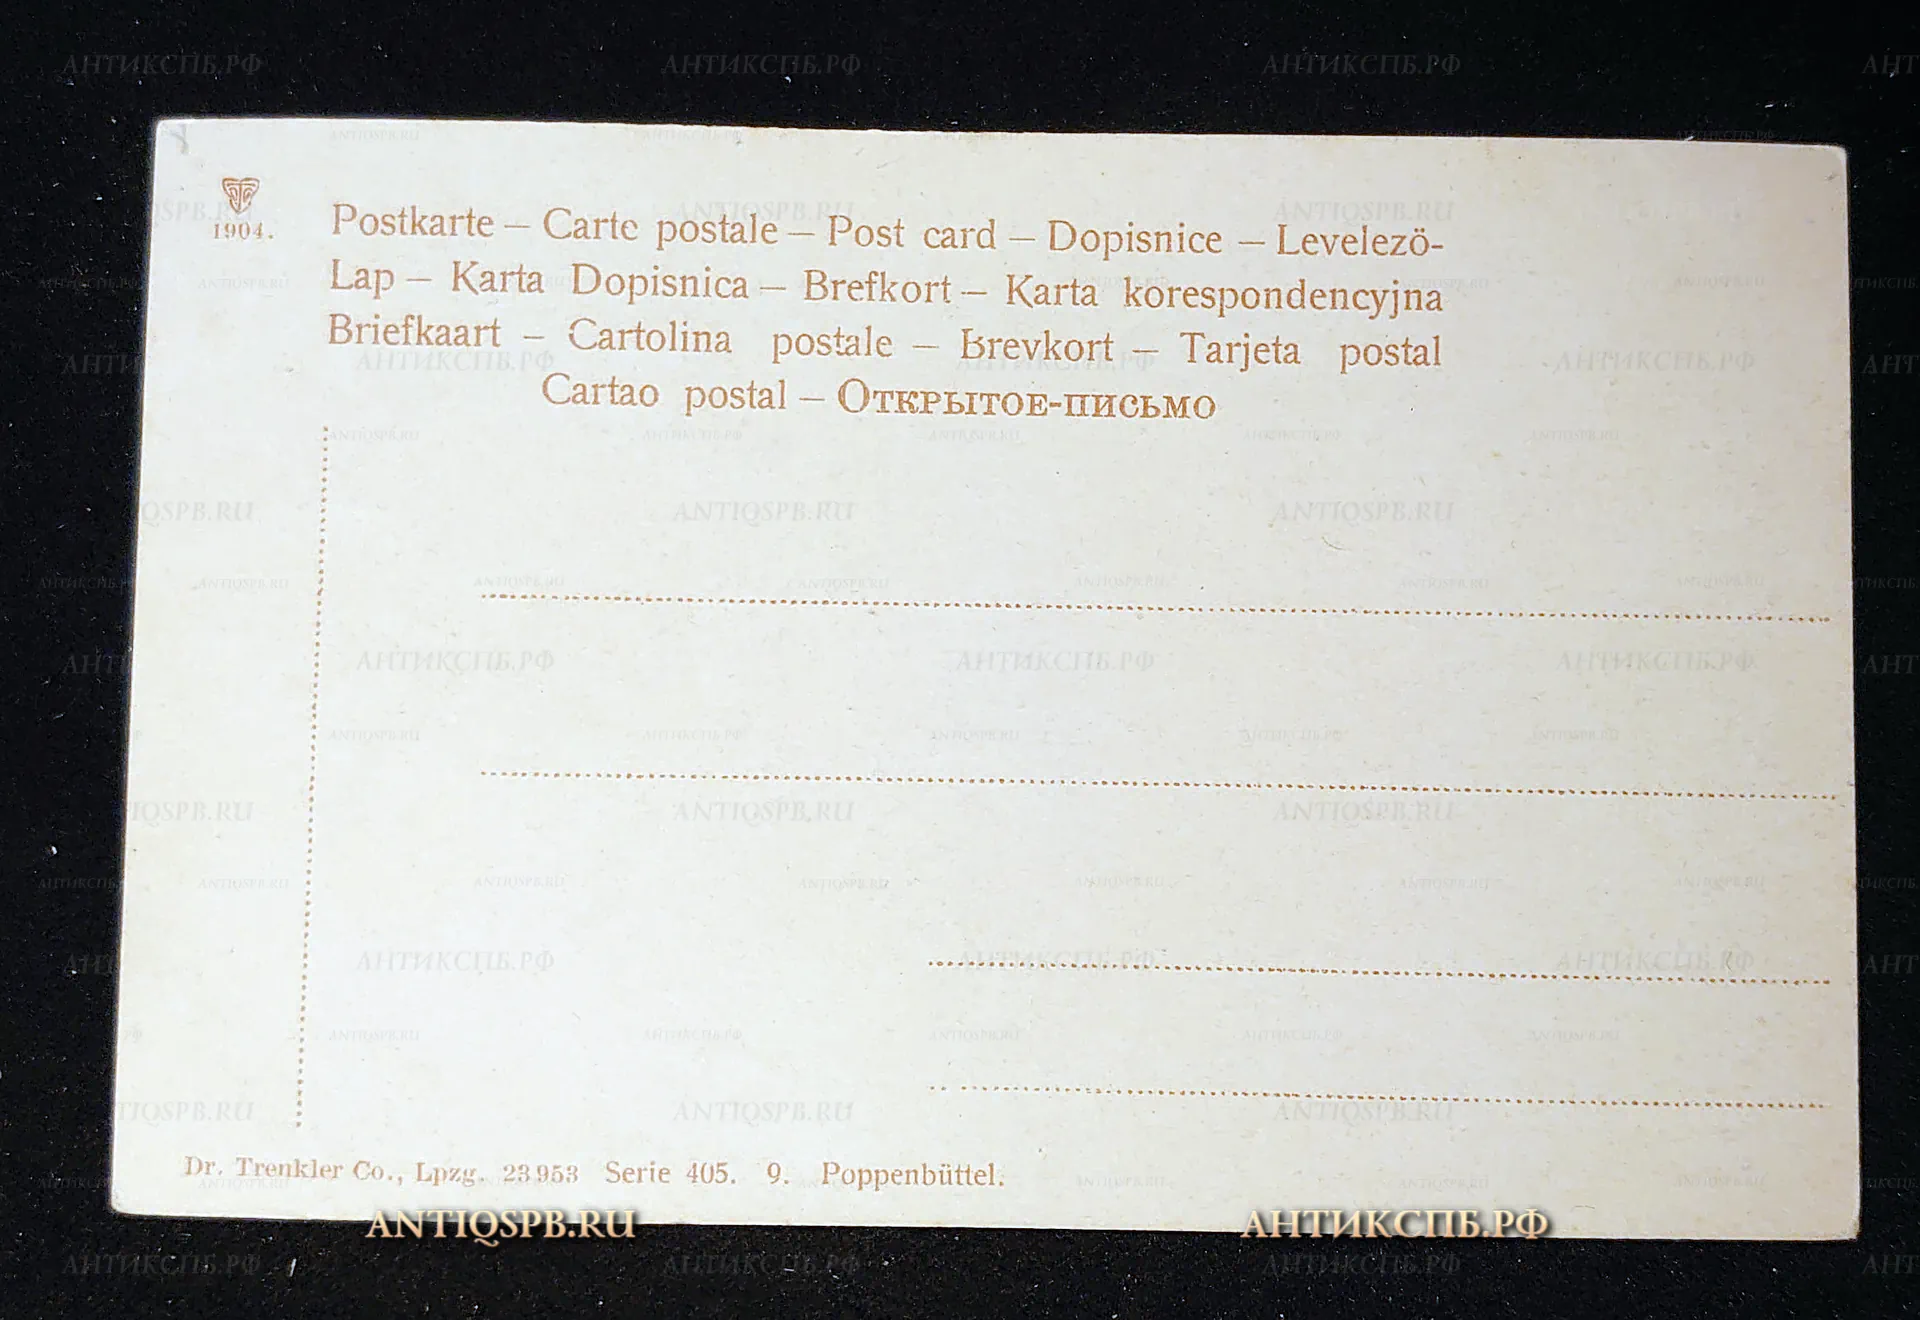 1904.
Postkarte – Carte postale – Post card – Dopisnice – Levelezö-
Lap – Karta Dopisnica – Brefkort – Karta korespondencyjna
Briefkaart – Cartolina postale – Brevkort – Tarjeta postal
Cartao postal – Открытое-письмо
Dr. Trenkler Co., Lpzg. 23953 Serie 405. 9. Poppenbüttel.
ANTIQSPB.RU АНТИКСПБ.РФ